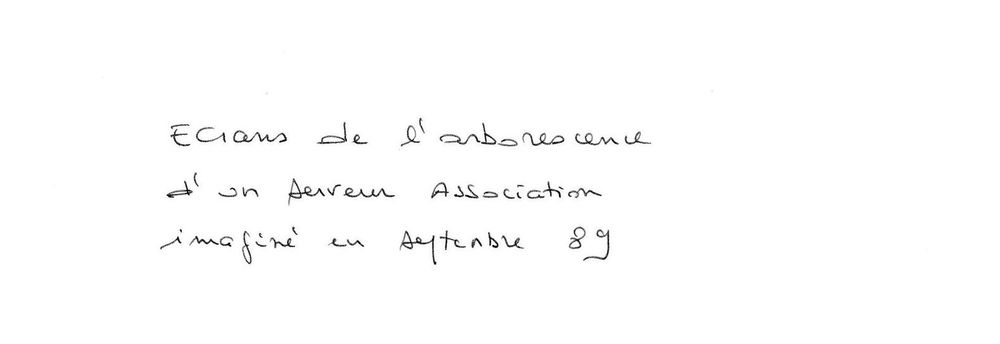 Ecrans de l'arborescence
d'un serveur Association
imaginé en septembre 89